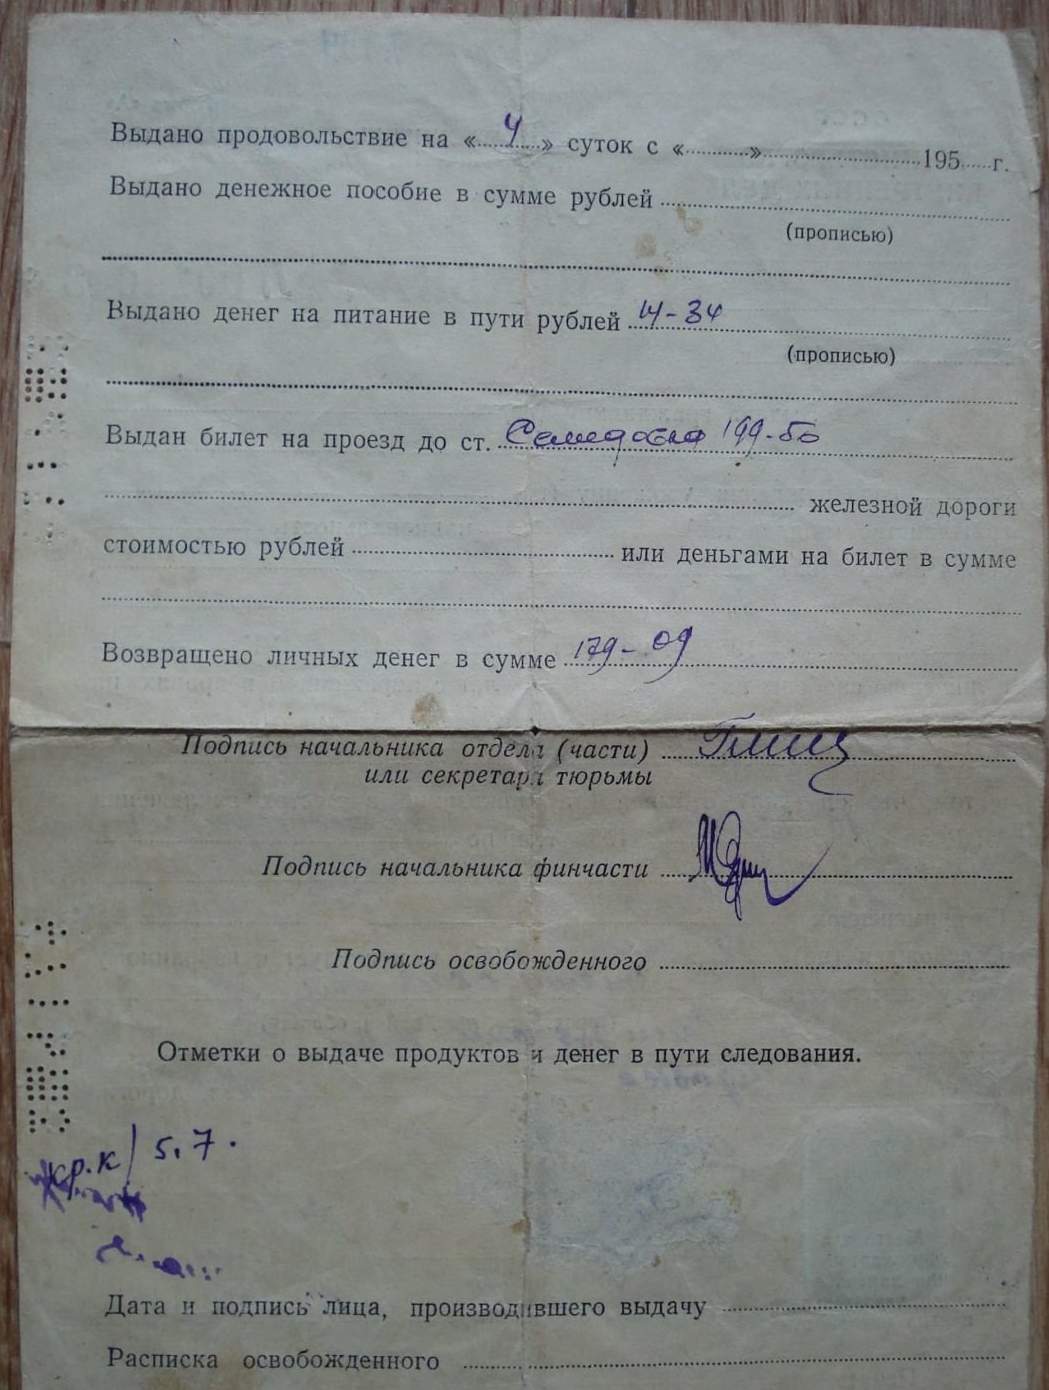 Выдано продовольствие на «4» суток с «..........»..........195.....г.
Выдано денежное пособие в сумме рублей
(прописью)
Выдано денег на питание в пути рублей 14-34
(прописью)
Выдан билет на проезд до ст. 199-50
железной дороги
стоимостью рублей .......... или деньгами на билет в сумме
Возвращено личных денег в сумме 179-09
Подпись начальника отдела (части)
или секретаря тюрьмы
Подпись начальника финчасти
Подпись освобожденного
Отметки о выдаче продуктов и денег в пути следования.
кр.к/ 5.7.
Дата и подпись лица, производившего выдачу
Расписка освобожденного